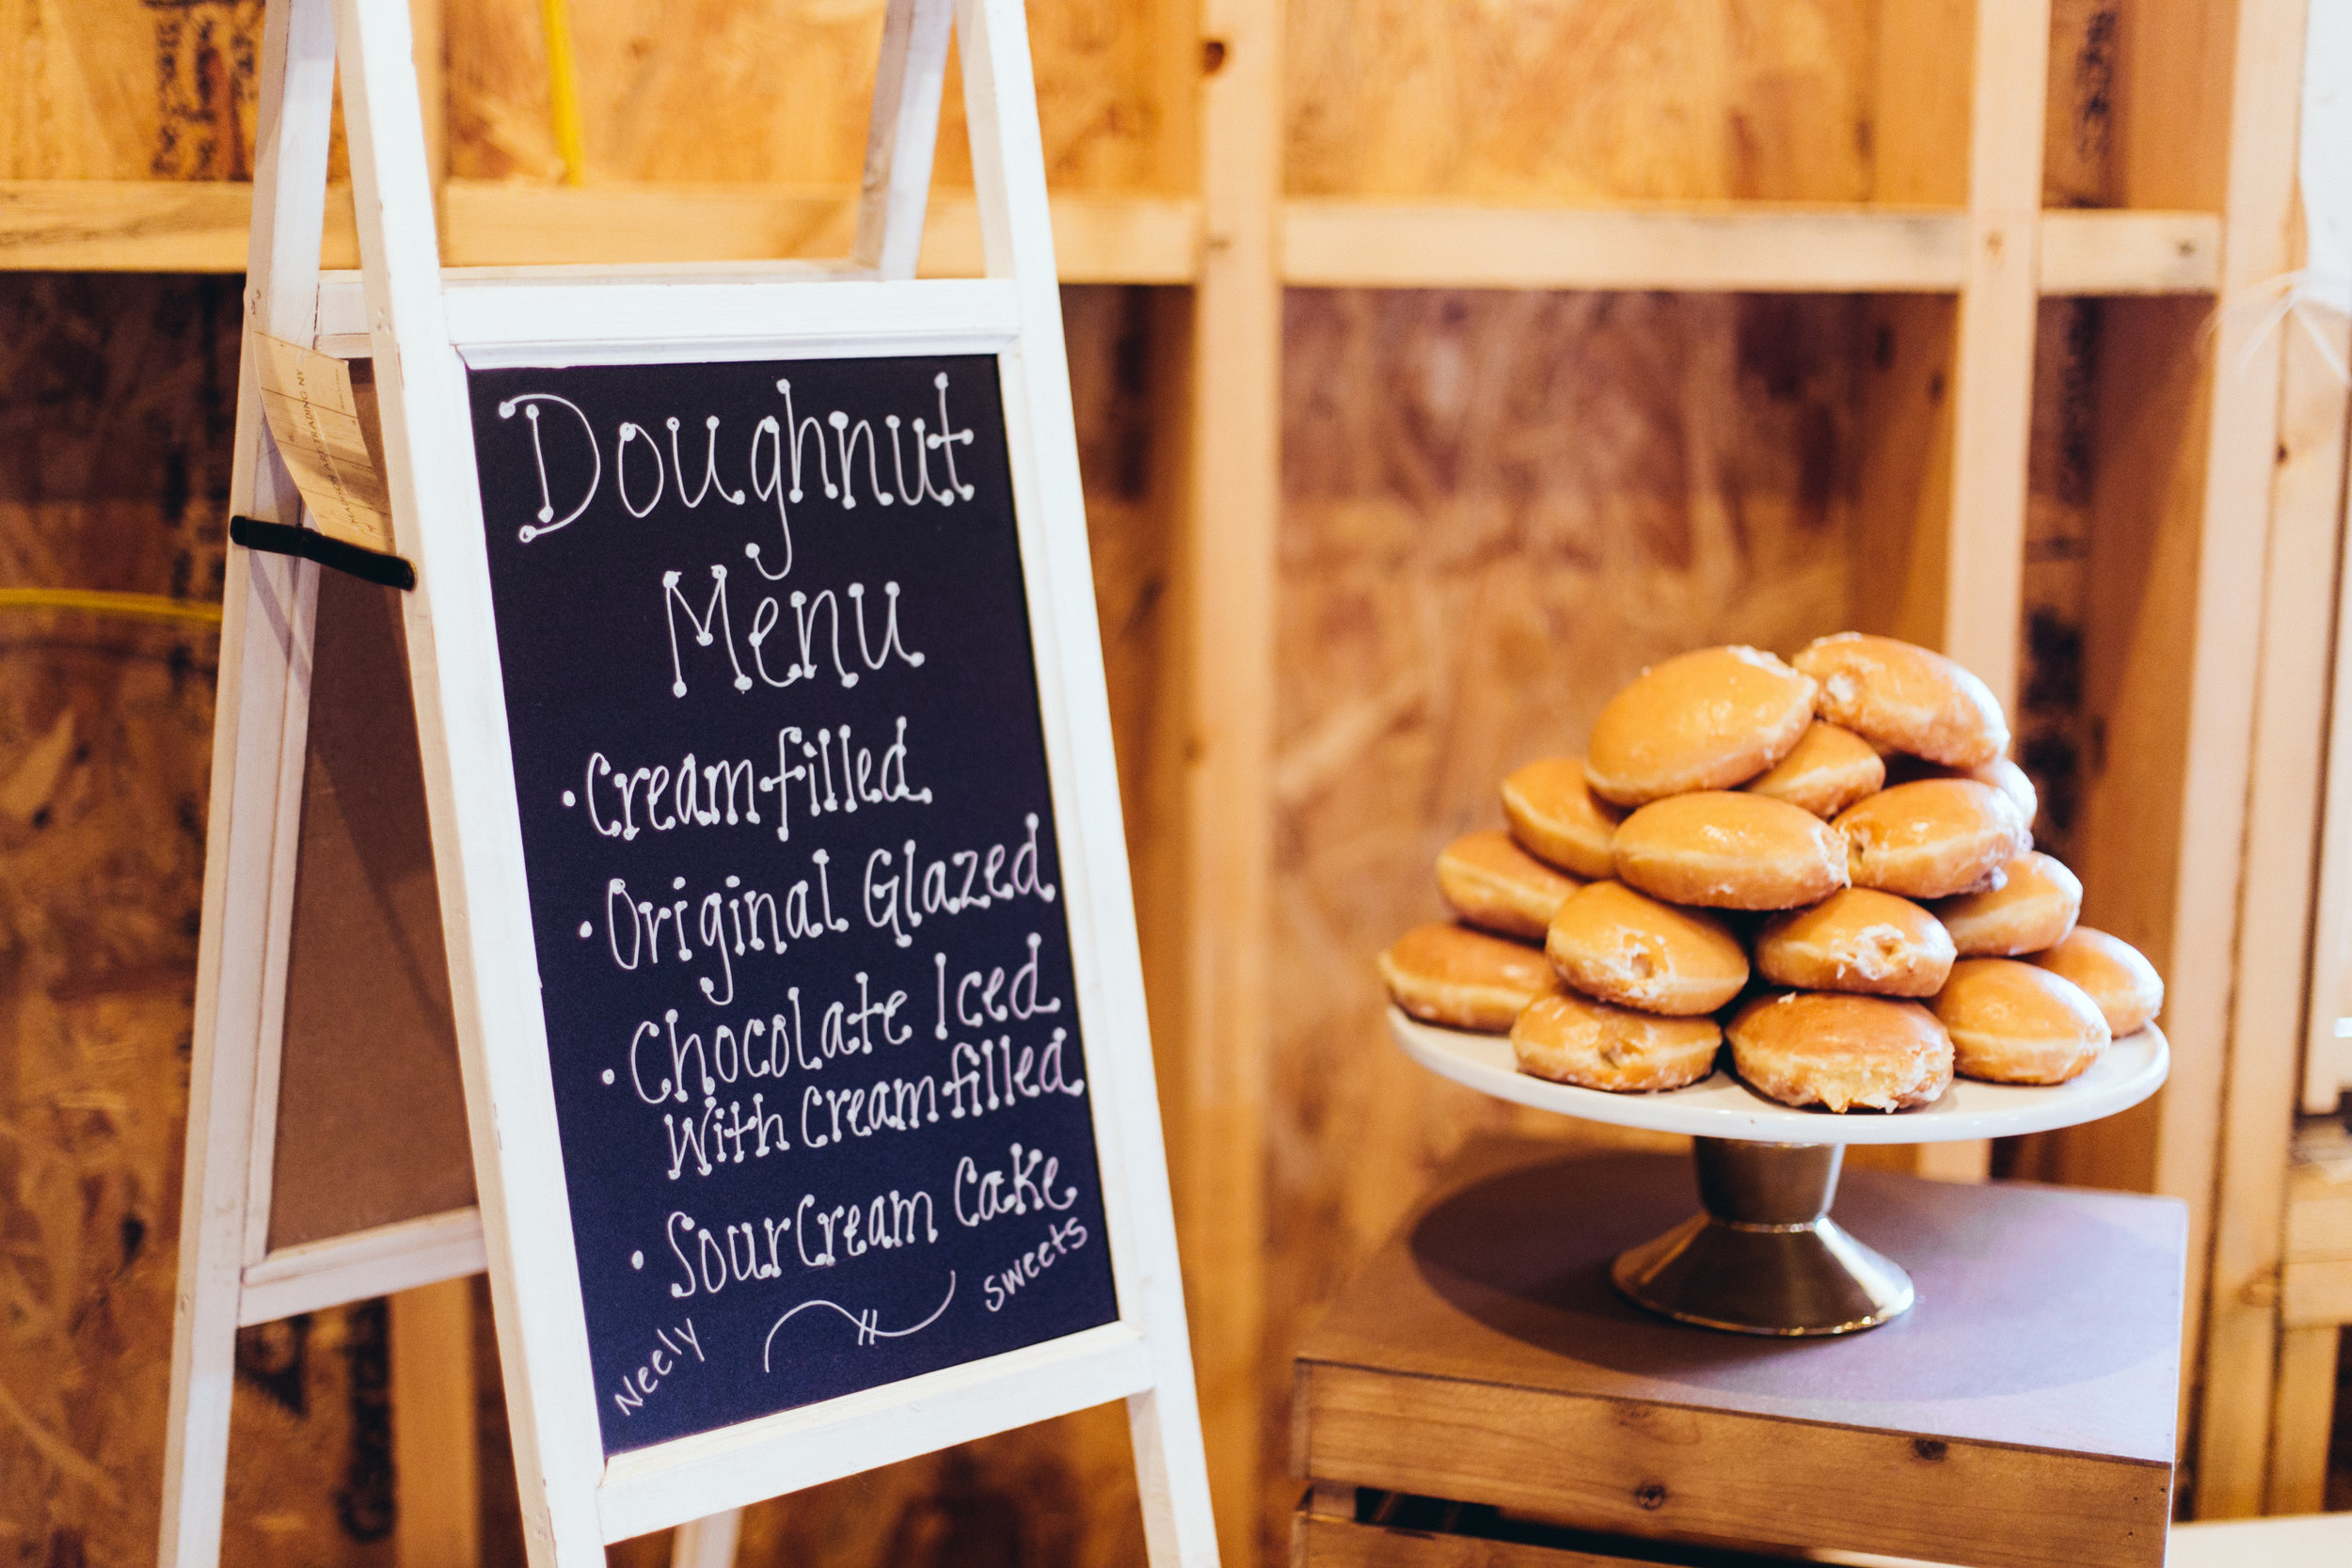 Doughnut
Menu
• Creamfilled
• Original Glazed
• Chocolate Iced
With Creamfilled
• Sour Cream Cake
Neely
Sweets